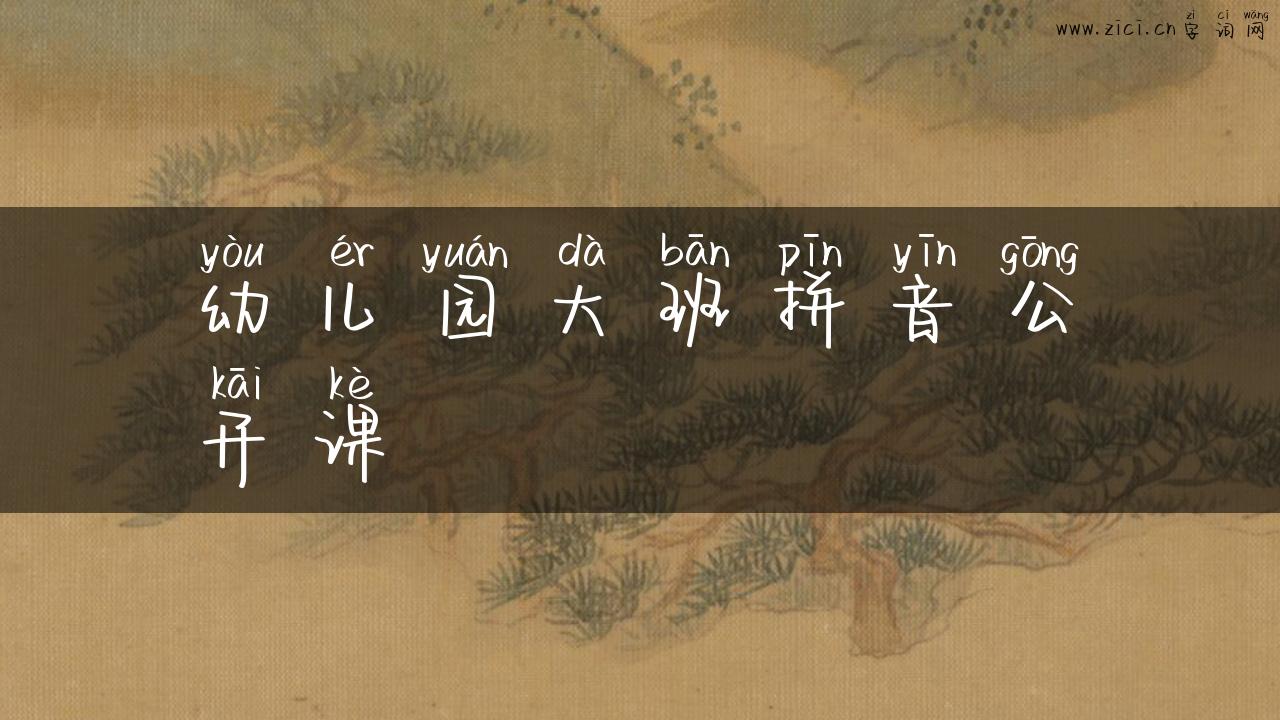 zì cí wǎng
www.zici.cn 字词网
yòu ér yuán dà bān pīn yīn gōng
幼儿园大班拼音公
kāi kè
开课